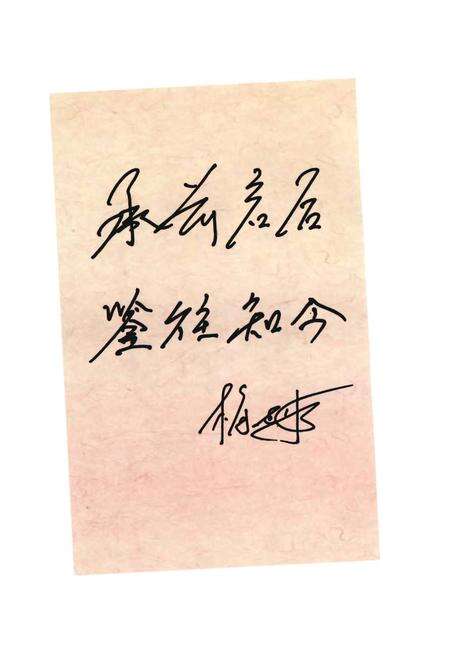 承前启后
鉴往知今